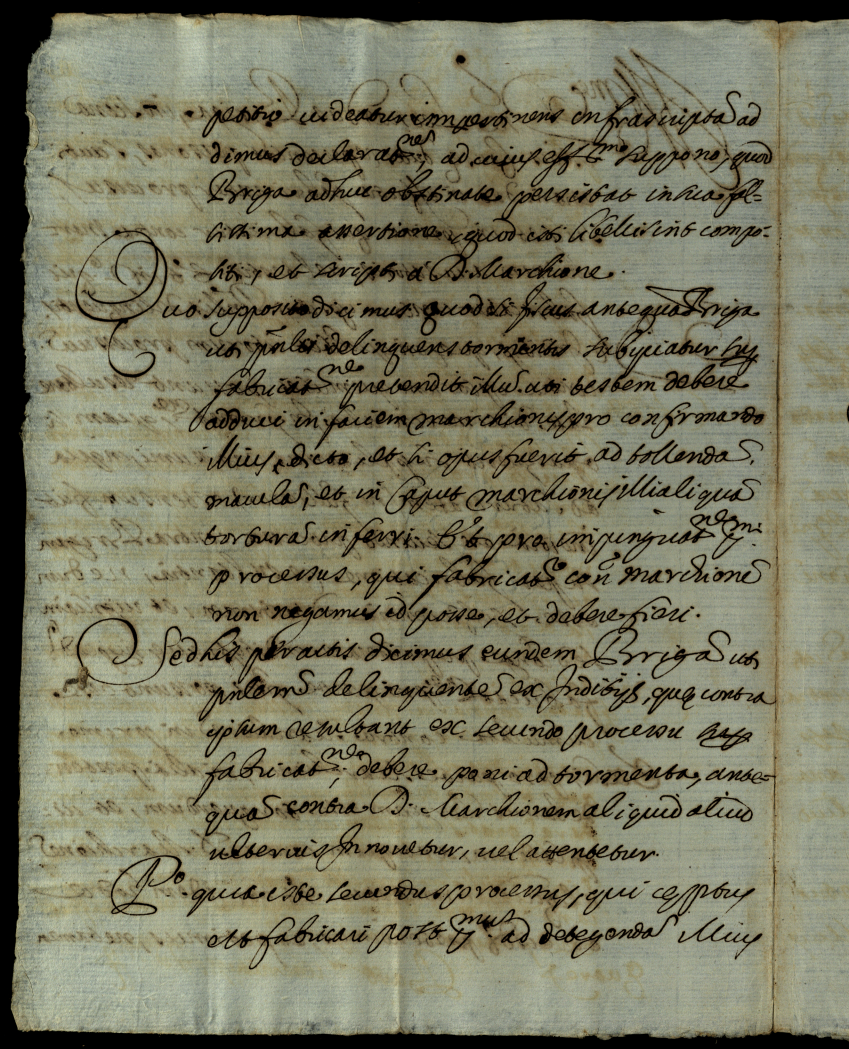 petitio videatur impertinens infrascriptã ad
dimus declarat.nem, ad cuius eff.m suppono, quod
Briga adhuc obstinate persistat in sua fal-
sissima assertione, quod isti libelli sint compo-
siti, et scripti à D. Marchione.
Quo supposito dicimus quod si fiscus antequã Briga
uti delinquens tormentis subijciatur
fabricat.ne pretendit illũ uti testem debere
adduci in faciem marchionis pro confirmando
illius dicto, et si opus fuerit ad tollendã
maculã, et in caput marchionis illi aliquã
torturã inferri pro impinguat.ne
processus, qui fabricat.r marchionẽ
non negamus id posse, et debere fieri.
Sed his peractis dicimus eundem Brigã uti
delinquentẽ ex Inditijs, quę contra
ipsum resultant ex secundo processu
fabricat.ne, debere poni ad tormenta, ante-
quã contra D. Marchionem aliquid aliud
ulterius Innovetur, vel attentetur.
P.o quia iste secundus processus, qui cęptus
est fabricari post ad detegendã illius